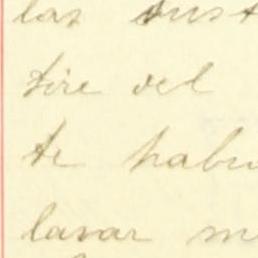 las
tire del
te habu
lavar m